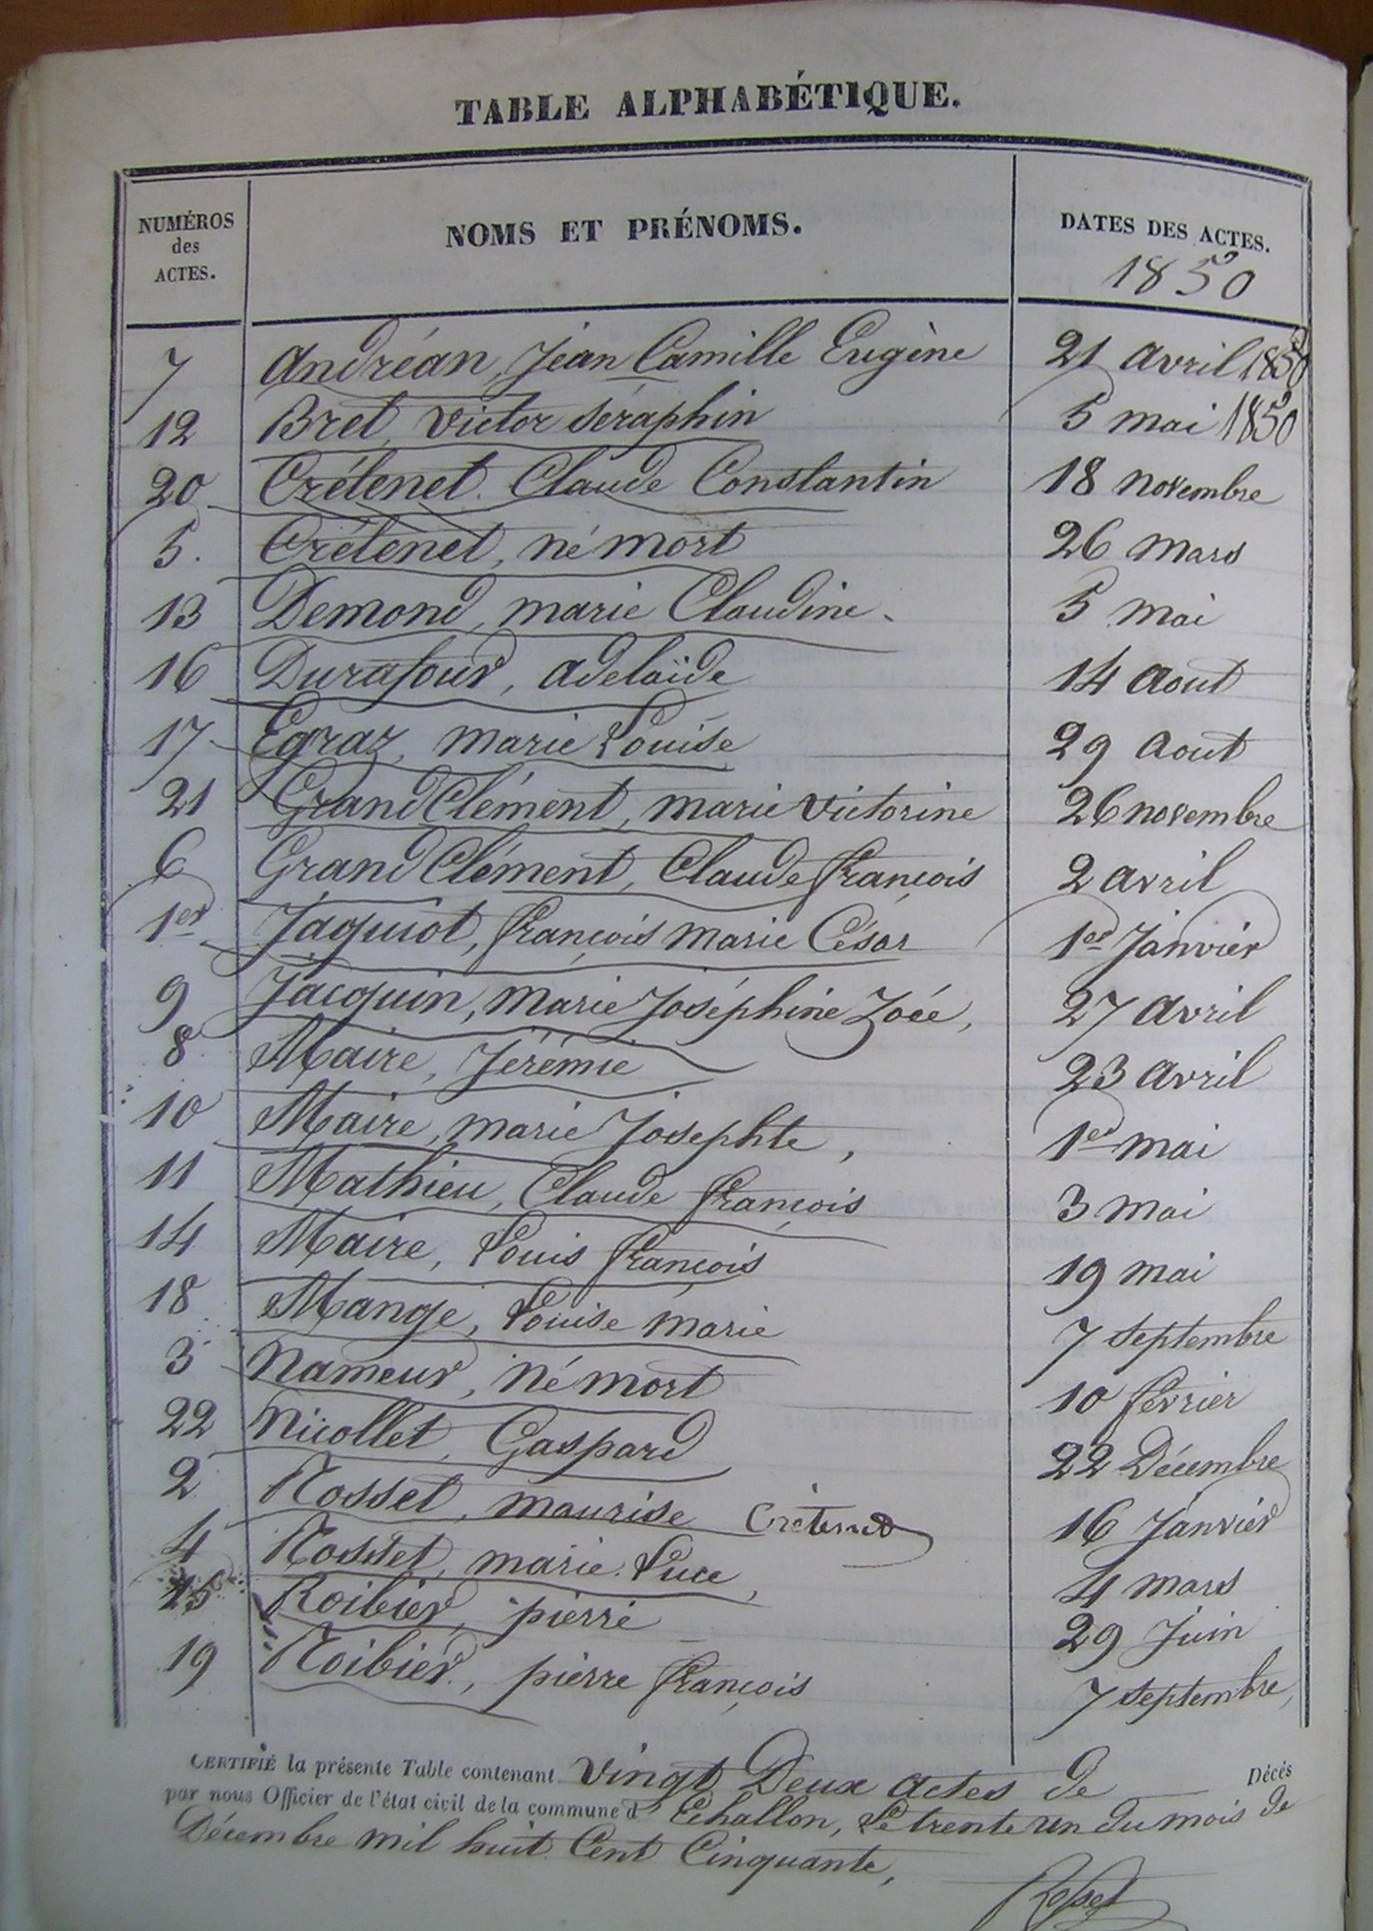 TABLE ALPHABÉTIQUE.
NUMÉROS des ACTES. NOMS ET PRÉNOMS. DATES DES ACTES.
1850
7 Andréan, Jean Camille Eugène 21 avril 1850
12 Bret, victor séraphin 5 mai 1850
20 Crétenet. Claude Constantin 18 novembre
5. Crétenet, né mort 26 mars
13 Demond, marie Claudine. 5 mai
16 Durafour, adelaïde 14 aout
17 Egraz, marie Louise 29 aout
21 Grand Clément, marie victorine 26 novembre
6 Grand Clément, Claude françois 2 avril
1er Jaquiot, françois marie César 1er Janvier
9 Jacquin, marie Joséphine Zoée, 27 avril
8 Maire, Jérémie 23 avril
10 Maire, marie Josephte, 1er mai
11 Mathieu, Claude françois 3 mai
14 Maire, Louis françois 19 mai
18 Mange, Louise marie 7 septembre
3 Nameur, né mort 10 février
22 Nicollet, Gaspard 22 Décembre
2 Rosset, maurise Crétenet 16 Janvier
4 Rosset, marie Luce, 4 mars
15 Roibier, pierre 29 Juin
19 Roibier, pierre françois 7 septembre,
CERTIFIÉ la présente Table contenant vingt Deux actes de Décés
par nous Officier de l'état civil de la commune d' Echallon, Le trente un du mois de
Décembre mil huit Cent Cinquante,
Rosset